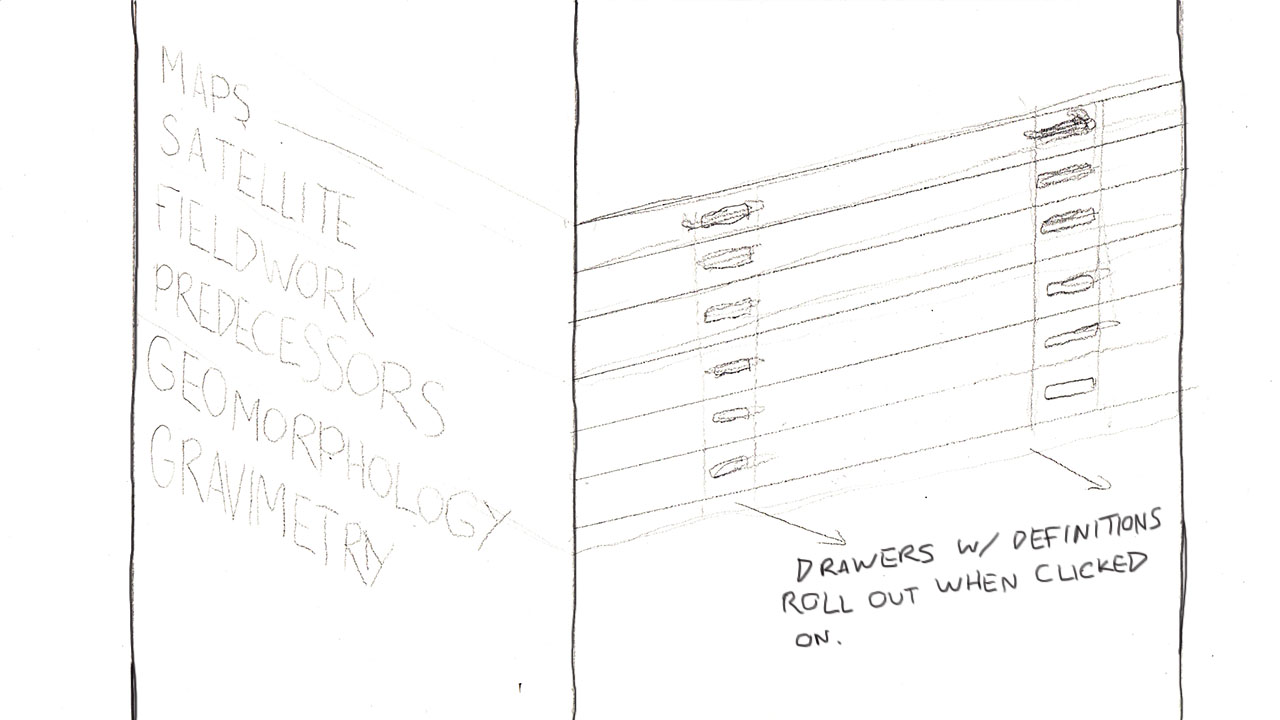 MAPS
SATELLITE
FIELDWORK
PREDECESSORS
GEOMORPHOLOGY
GRAVIMETRY
DRAWERS W/ DEFINITIONS
ROLL OUT WHEN CLICKED
ON.